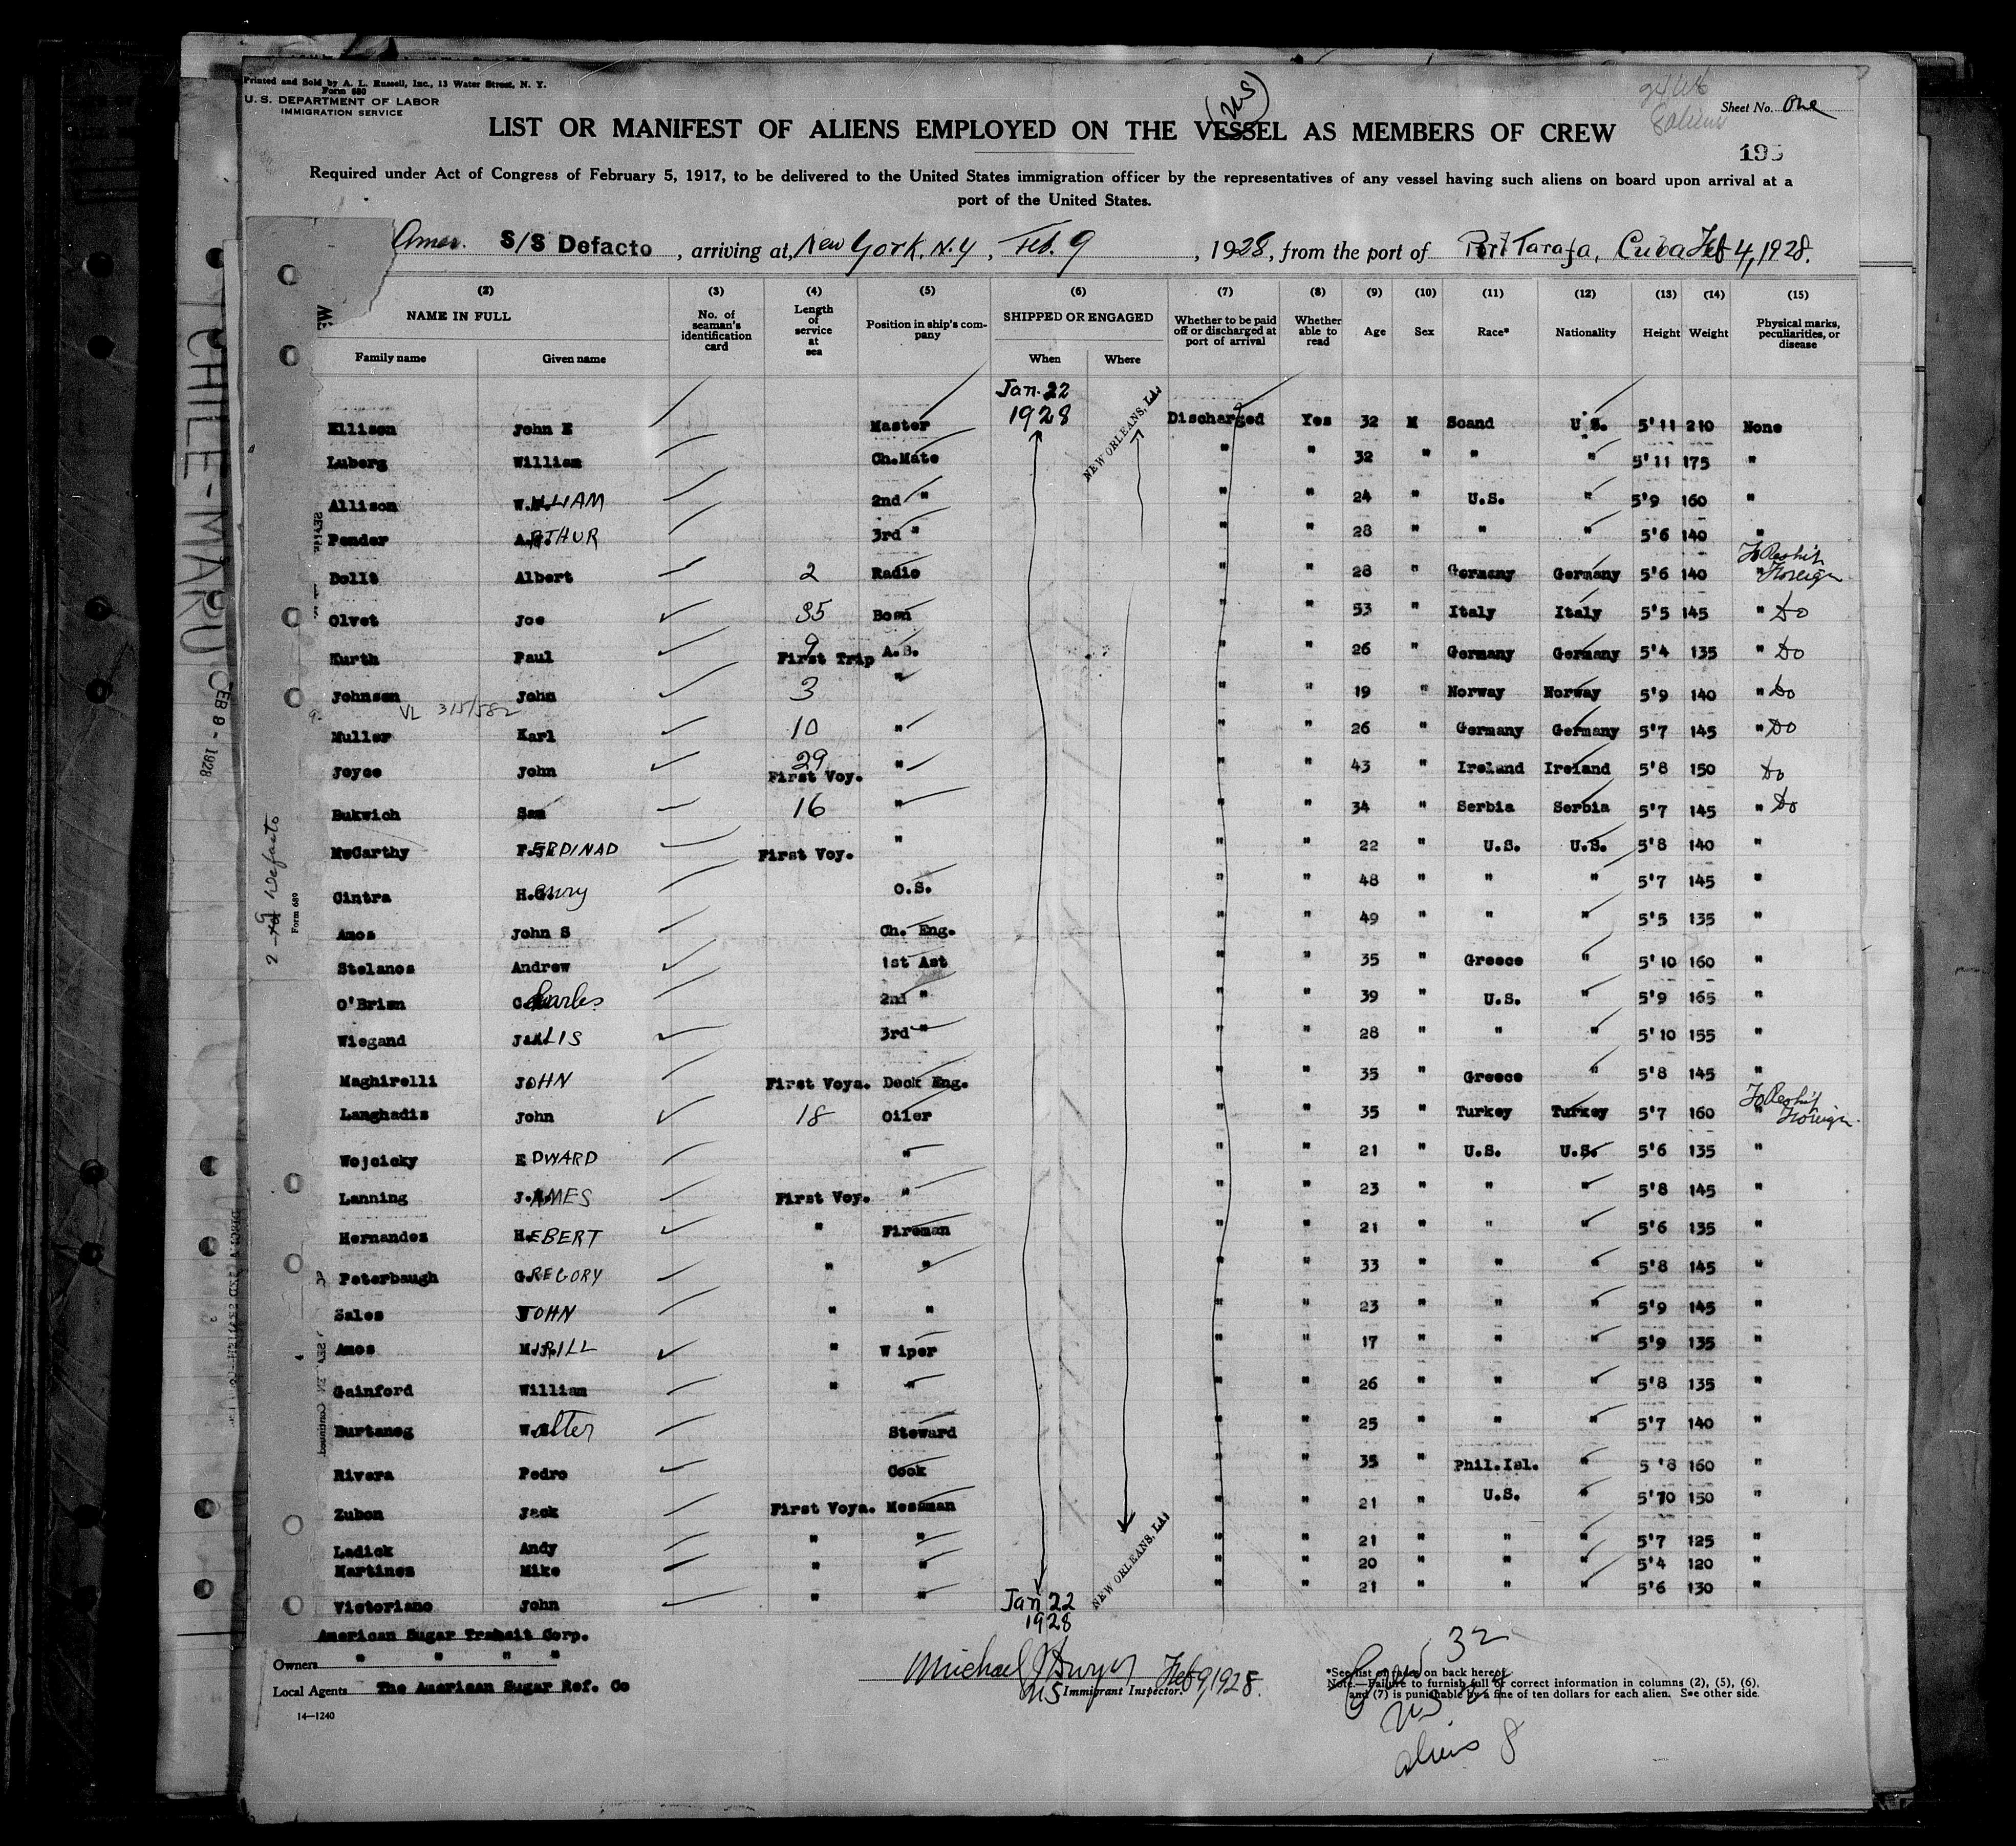 Printed and Sold by A. L. Russell, Inc., 13 Water Street, N. Y.
Form 680
U. S. DEPARTMENT OF LABOR
IMMIGRATION SERVICE
(US)
Sheet No. One
LIST OR MANIFEST OF ALIENS EMPLOYED ON THE VESSEL AS MEMBERS OF CREW
195
Required under Act of Congress of February 5, 1917, to be delivered to the United States immigration officer by the representatives of any vessel having such aliens on board upon arrival at a
port of the United States.
Amer. S/S Defacto, arriving at, New York, N.Y, Feb. 9, 1928, from the port of Port Tarafa, Cuba Feb 4, 1928.
(2) (3) (4) (5) (6) (7) (8) (9) (10) (11) (12) (13) (14) (15)
NAME IN FULL No. of seaman's identification card Length of service at sea Position in ship's company SHIPPED OR ENGAGED Whether to be paid off or discharged at port of arrival Whether able to read Age Sex Race* Nationality Height Weight Physical marks, peculiarities, or disease
Family name Given name When Where
Jan. 22 1928 NEW ORLEANS, LA.
Ellison John E Master Discharged Yes 32 M Scand U.S. 5'11 210 None
Luberg William Ch.Mate " " 32 " " " 5'11 175 "
Allison W.ILLIAM 2nd " " " 24 " U.S. " 5'9 160 "
Pender A.RTHUR 3rd " " " 28 " " " 5'6 140 "
Dollt Albert 2 Radio " " 28 " Germany Germany 5'6 140 " To Reship Foreign
Olvet Joe 35 Bosn " " 53 " Italy Italy 5'5 145 " Do
Kurth Paul 9 First Trip A.B. " " 26 " Germany Germany 5'4 135 " Do
Johnsen John 3 " " " 19 " Norway Norway 5'9 140 " Do
VL 315/582
Muller Karl 10 " " " 26 " Germany Germany 5'7 145 " Do
Joyce John 29 First Voy. " " " 43 " Ireland Ireland 5'8 150 Do
Bukwich Sam 16 " " " 34 " Serbia Serbia 5'7 145 " Do
McCarthy F.ERDINAD First Voy. " " " 22 " U.S. U.S. 5'8 140 "
Cintra H.enry O.S. " " 48 " " " 5'7 145 "
Amos John S Ch. Eng. " " 49 " " " 5'5 135 "
Stelanos Andrew 1st Ast " " 35 " Greece " 5'10 160 "
O'Brien Charles 2nd " " " 39 " U.S. " 5'9 165 "
Wiegand J.ULIS 3rd " " " 28 " " " 5'10 155 "
Maghirelli JOHN First Voya. Deck Eng. " " 35 " Greece " 5'8 145 "
Langhadis John 18 Oiler " " 35 " Turkey Turkey 5'7 160 " To Reship Foreign
Wojcicky EDWARD " " " 21 " U.S. U.S. 5'6 135 "
Lanning J.AMES First Voy. " " " 23 " " " 5'8 145 "
Hernandez H.EBERT " Fireman " " 21 " " " 5'6 135 "
Peterbaugh GREGORY " " " " 33 " " " 5'8 145 "
Sales JOHN " " " " 23 " " " 5'9 145 "
Amos " Wiper " " 17 " " " 5'9 135 "
Gainford William " " " " 26 " " " 5'8 135 "
Burtaneg Walter Steward " " 25 " " " 5'7 140 "
Rivera Pedro Cook " " 35 " Phil.Isl. " 5'8 160 "
Zubon Jack First Voya. Messman " " 21 " U.S. " 5'10 150 "
Ladick Andy " " " " 21 " " " 5'7 125 "
Martines Mike " " " " 20 " " " 5'4 120 "
Victoriano John " " " " 21 " " " 5'6 130 "
Jan 22 1928 NEW ORLEANS, LA.
American Sugar Transit Corp.
Owners " " " "
Local Agents The American Sugar Ref. Co
14—1240
Michael J Dwyer Feb 9, 1928.
US Immigrant Inspector.
*See list of races on back hereof.
Note.—Failure to furnish full or correct information in columns (2), (5), (6), and (7) is punishable by a fine of ten dollars for each alien. See other side.
Crew 32
US 24
aliens 8
CHILE-MARU
FEB 9 - 1928
Defacto
Form 689